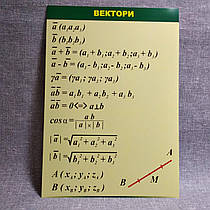 ВЕКТОРИ
a̅ (a₁a₂a₃)
b̅ (b₁b₂b₃)
a̅ + b̅ = (a₁ + b₁; a₂ + b₂; a₃ + b₃)
a̅ - b̅ = (a₁ - b₁; a₂ - b₂; a₃ - b₃)
γa̅ = (γa₁; γa₂; γa₃)
a̅b̅ = a₁b₁ + a₂b₂ + a₃b₃
a̅b̅ = 0 <=> a⊥b
cos α = a b / |a| × |b|
|a̅| = √a₁² + a₂² + a₃²
|b̅| = √b₁² + b₂² + b₃²
A (x₁; y₁; z₁)
B (x₂; y₂; z₂)
A
M
B